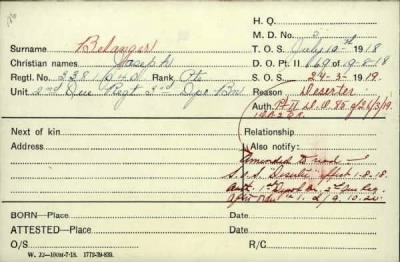 H. Q.
M. D. No. 5
Surname Belanger T. O. S. July 10th 1918
Christian names Joseph D. O. Pt. II 169 of 19-8-18
Regtl. No. Rank Pte S. O. S. 24-3-1919.
Unit 2nd Que Regt 2nd Dpo Bn Reason Deserter
Auth. Pt II D.O. 85 of 26/3/19.
Next of kin Relationship
Address Also notify:
Amended to read
S.O.S. "Deserter" effect 1-8-18
Auth. 1st Depot Bn. 2nd Que Reg.
BORN—Place Date
ATTESTED—Place Date
O/S R/C
W. 22—100M-7-18. 1772-39-839.